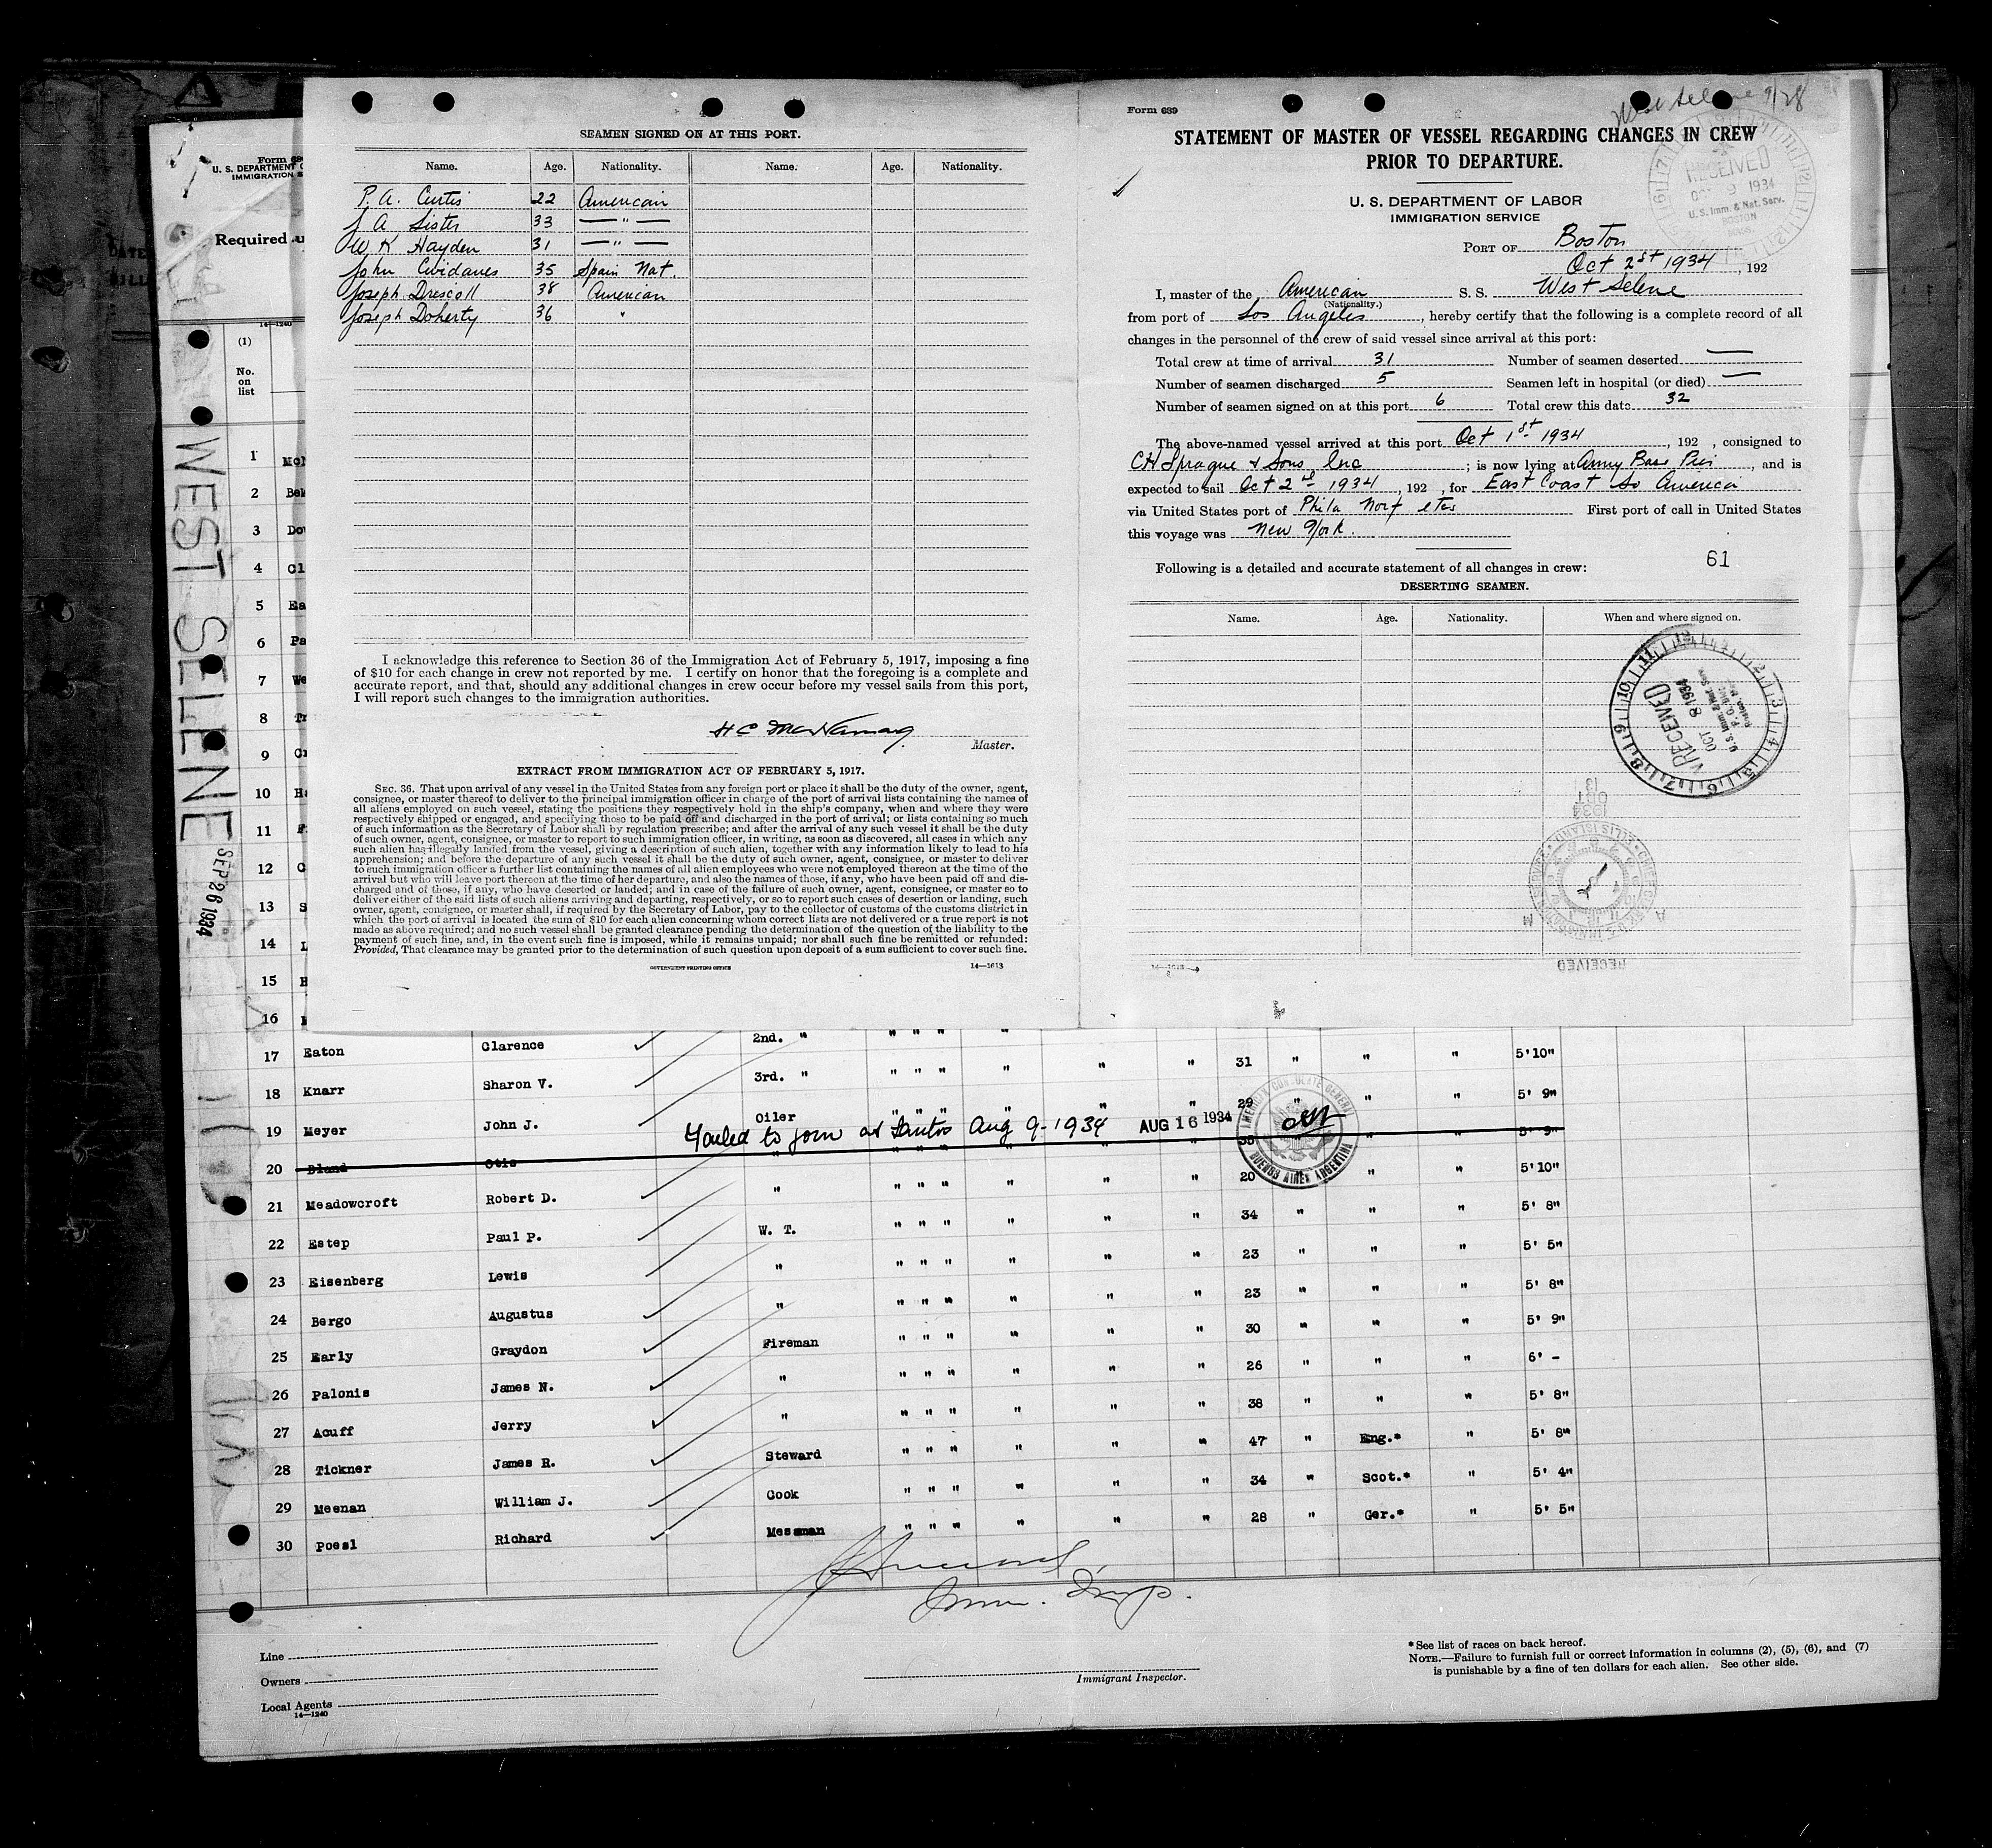 SEAMEN SIGNED ON AT THIS PORT.
Name. Age. Nationality. Name. Age. Nationality.
P. A. Curtis 22 American
J A Sister 33 — " —
W K Hayden 31 — " —
John Cividanes 35 Spain Nat.
Joseph Drescoll 38 American
Joseph Doherty 36 "
I acknowledge this reference to Section 36 of the Immigration Act of February 5, 1917, imposing a fine
of $10 for each change in crew not reported by me. I certify on honor that the foregoing is a complete and
accurate report, and that, should any additional changes in crew occur before my vessel sails from this port,
I will report such changes to the immigration authorities.
H C McNamara
Master.
EXTRACT FROM IMMIGRATION ACT OF FEBRUARY 5, 1917.
SEC. 36. That upon arrival of any vessel in the United States from any foreign port or place it shall be the duty of the owner, agent,
consignee, or master thereof to deliver to the principal immigration officer in charge of the port of arrival lists containing the names of
all aliens employed on such vessel, stating the positions they respectively hold in the ship's company, when and where they were
respectively shipped or engaged, and specifying those to be paid off and discharged in the port of arrival; or lists containing so much
of such information as the Secretary of Labor shall by regulation prescribe; and after the arrival of any such vessel it shall be the duty
of such owner, agent, consignee, or master to report to such immigration officer, in writing, as soon as discovered, all cases in which any
such alien has illegally landed from the vessel, giving a description of such alien, together with any information likely to lead to his
apprehension; and before the departure of any such vessel it shall be the duty of such owner, agent, consignee, or master to deliver
to such immigration officer a further list containing the names of all alien employees who were not employed thereon at the time of the
arrival but who will leave port thereon at the time of her departure, and also the names of those, if any, who have been paid off and dis-
charged and of those, if any, who have deserted or landed; and in case of the failure of such owner, agent, consignee, or master so to
deliver either of the said lists of such aliens arriving and departing, respectively, or so to report such cases of desertion or landing, such
owner, agent, consignee, or master shall, if required by the Secretary of Labor, pay to the collector of customs of the customs district in
which the port of arrival is located the sum of $10 for each alien concerning whom correct lists are not delivered or a true report is not
made as above required; and no such vessel shall be granted clearance pending the determination of the question of the liability to the
payment of such fine, and, in the event such fine is imposed, while it remains unpaid; nor shall such fine be remitted or refunded:
Provided, That clearance may be granted prior to the determination of such question upon deposit of a sum sufficient to cover such fine.
GOVERNMENT PRINTING OFFICE 14—1613
Form 689
West Selene 9/28
STATEMENT OF MASTER OF VESSEL REGARDING CHANGES IN CREW
PRIOR TO DEPARTURE.
U. S. DEPARTMENT OF LABOR
IMMIGRATION SERVICE
RECEIVED
OCT 9 1934
U. S. Imm. & Nat. Serv.
BOSTON
PORT OF Boston
Oct 2st 1934, 192
I, master of the American S. S. West Selene
(Nationality.)
from port of Los Angeles, hereby certify that the following is a complete record of all
changes in the personnel of the crew of said vessel since arrival at this port:
Total crew at time of arrival 31 Number of seamen deserted —
Number of seamen discharged 5 Seamen left in hospital (or died) —
Number of seamen signed on at this port 6 Total crew this date 32
The above-named vessel arrived at this port Oct 1st 1934, 192 , consigned to
CH Sprague & Sons Inc; is now lying at Army Base Pier, and is
expected to sail Oct 2nd 1934, 192 , for East Coast So America
via United States port of Phila Norf etc First port of call in United States
this voyage was New York.
61
Following is a detailed and accurate statement of all changes in crew:
DESERTING SEAMEN.
Name. Age. Nationality. When and where signed on.
RECEIVED
OCT 8 1934
U. S. Imm. & Nat. Serv.
13
OCT
1934
ELLIS ISLAND
RECEIVED
14—1613
Form 68
U. S. DEPARTMENT O
IMMIGRATION S
Required u
14—1240
(1)
No.
on
list
WEST SELENE
SEP 26 1934
1 McN
2 Bek
3 Dow
4 Cl
5 Ea
6 Pa
7 We
8 Tr
9 Cr
10 Ha
11 F
12 C
13 S
14 L
15 H
16
17 Eaton Clarence 2nd. " " " " " " " 31 " " " 5'10"
18 Knarr Sharon V. 3rd. " " " " " " " 29 " " " 5' 9"
19 Meyer John J. Oiler " " " " " " 35 " " " 5' 9"
Failed to join at Santos Aug 9-1934 AUG 16 1934
AMERICAN CONSULATE GENERAL
BUENOS AIRES ARGENTINA
20 Bland Otis " " " " " " " 20 " " " 5'10"
21 Meadowcroft Robert D. " " " " " " " 34 " " " 5' 8"
22 Estep Paul P. W. T. " " " " " " 23 " " " 5' 5"
23 Eisenberg Lewis " " " " " " " 23 " " " 5' 8"
24 Bergo Augustus " " " " " " " 30 " " " 5' 9"
25 Early Graydon Fireman " " " " " " 26 " " " 6' -
26 Palonis James N. " " " " " " " 38 " " " 5' 8"
27 Acuff Jerry " " " " " " " 47 " Eng.* " 5' 8"
28 Tickner James R. Steward " " " " " " 34 " Scot.* " 5' 4"
29 Meenan William J. Cook " " " " " " 28 " Ger.* " 5' 5"
30 Poesl Richard Messman " " " " " "
Imm. Insp.
Line
Owners
Local Agents
14—1240
Immigrant Inspector.
*See list of races on back hereof.
NOTE.—Failure to furnish full or correct information in columns (2), (5), (6), and (7)
is punishable by a fine of ten dollars for each alien. See other side.